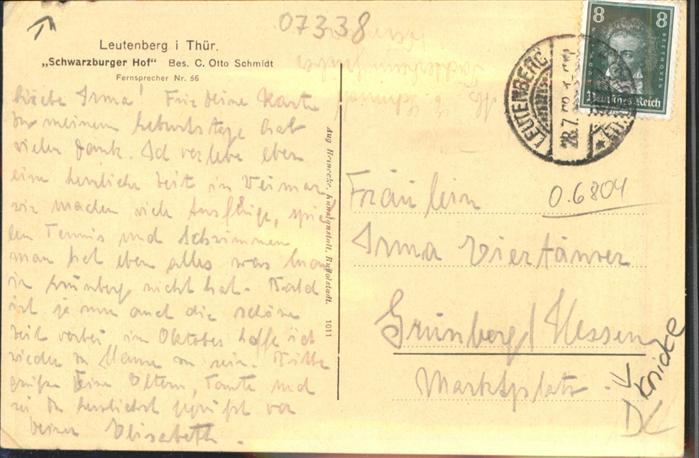 07338
Leutenberg i Thür.
„Schwarzburger Hof" Bes. C. Otto Schmidt
Fernsprecher Nr. 56
Liebe Irma! Für Deine Karte
zu meinem Geburtstage hab
vielen Dank. Ich verlebe eben
eine herrliche Zeit in Weimar,
wir machen viele Ausflüge, spie-
len Tennis und Schwimmen
man hat eben alles was man
in Grünberg nicht hat. Bald
ist ja nun auch die schöne
Zeit vorbei, im Oktober hoffe ich
wieder in zu sein. Bitte
grüße Deine Eltern, Tante und
sei Du herzlichst gegrüßt von
Deiner Elisabeth.
Aug Heinecke, Kunstanstalt, Rudolstadt. 1011
8 8
Deutsches Reich
LEUTENBERG
28.7.
0.6804
Fräulein
Irma
Grünberg/Hessen
Marktplatz.
Knicke